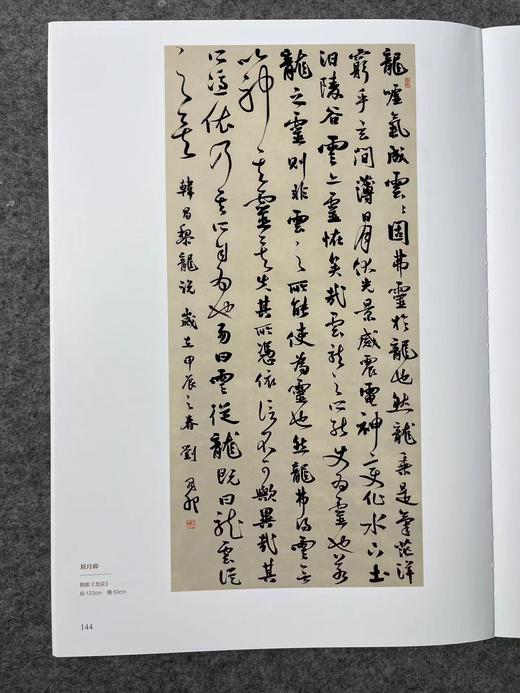 龍嘘氣成雲〻固弗靈於龍也然龍乘是氣茫洋
窮乎玄间薄日月伏光景感震電神变化水下土
汩陵谷雲亦靈怪矣哉雲龍之所能使為靈也若
龍之靈則非雲〻之所能使為靈也然龍弗得雲無
以神其靈矣失其所憑依信不可歟異哉其
所憑依乃其所自為也易曰雲從龍既曰龍雲從
之矣 韓昌黎龍説 歲在甲辰之春 劉月卯
刘月卯
韩愈《龙说》
纵 133cm 横 60cm
144